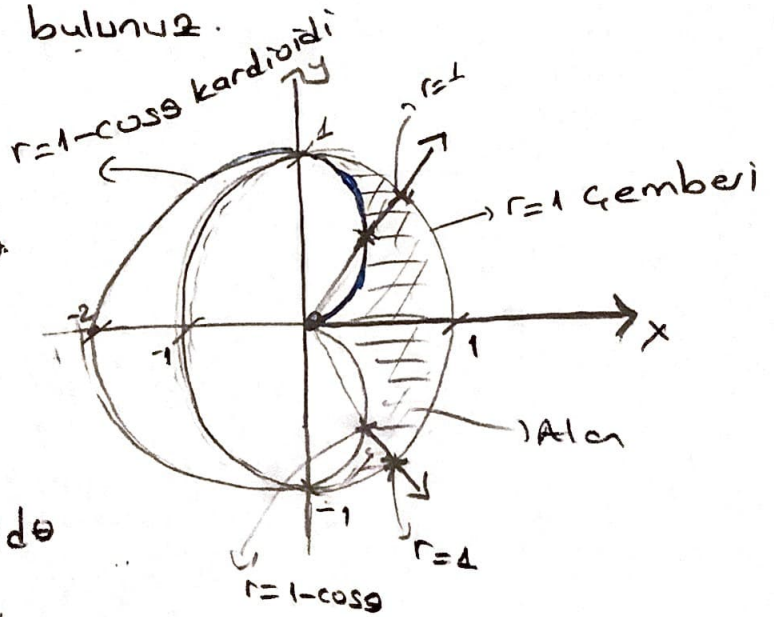 bulunuz.
r=1-cosθ kardioidi
y
r=1
1
r=1 Çemberi
-2
-1
1
x
Alan
-1
dθ
r=1
r=1-cosθ